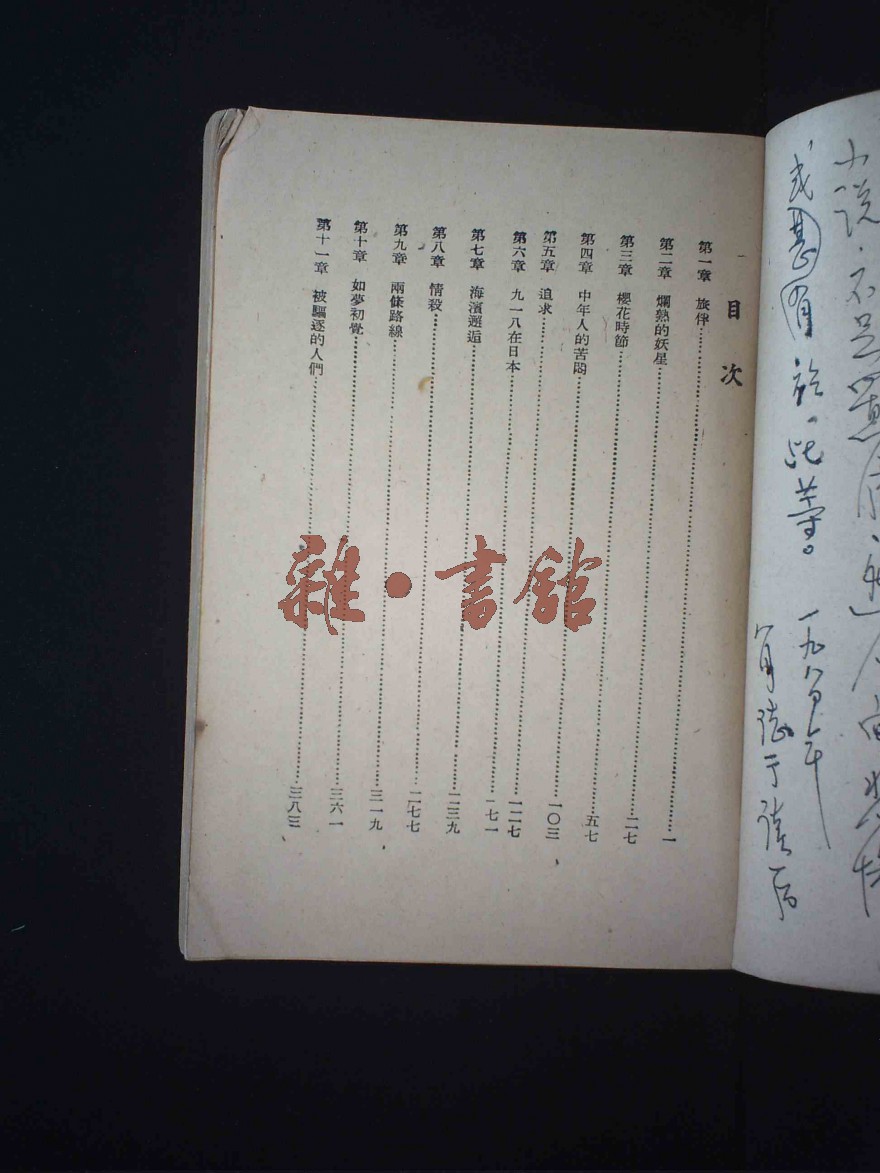 小说，不足
甚有於此等。
目次
第一章 旅伴……一
第二章 爛熟的妖星……二七
第三章 櫻花時節……五七
第四章 中年人的苦悶……一〇三
第五章 追求……一二七
第六章 九一八在日本……一七一
第七章 海濱邂逅……二三九
第八章 情殺……二七七
第九章 兩條路線……三一九
第十章 如夢初覺……三六一
第十一章 被驅逐的人們……三八三
雜·書館